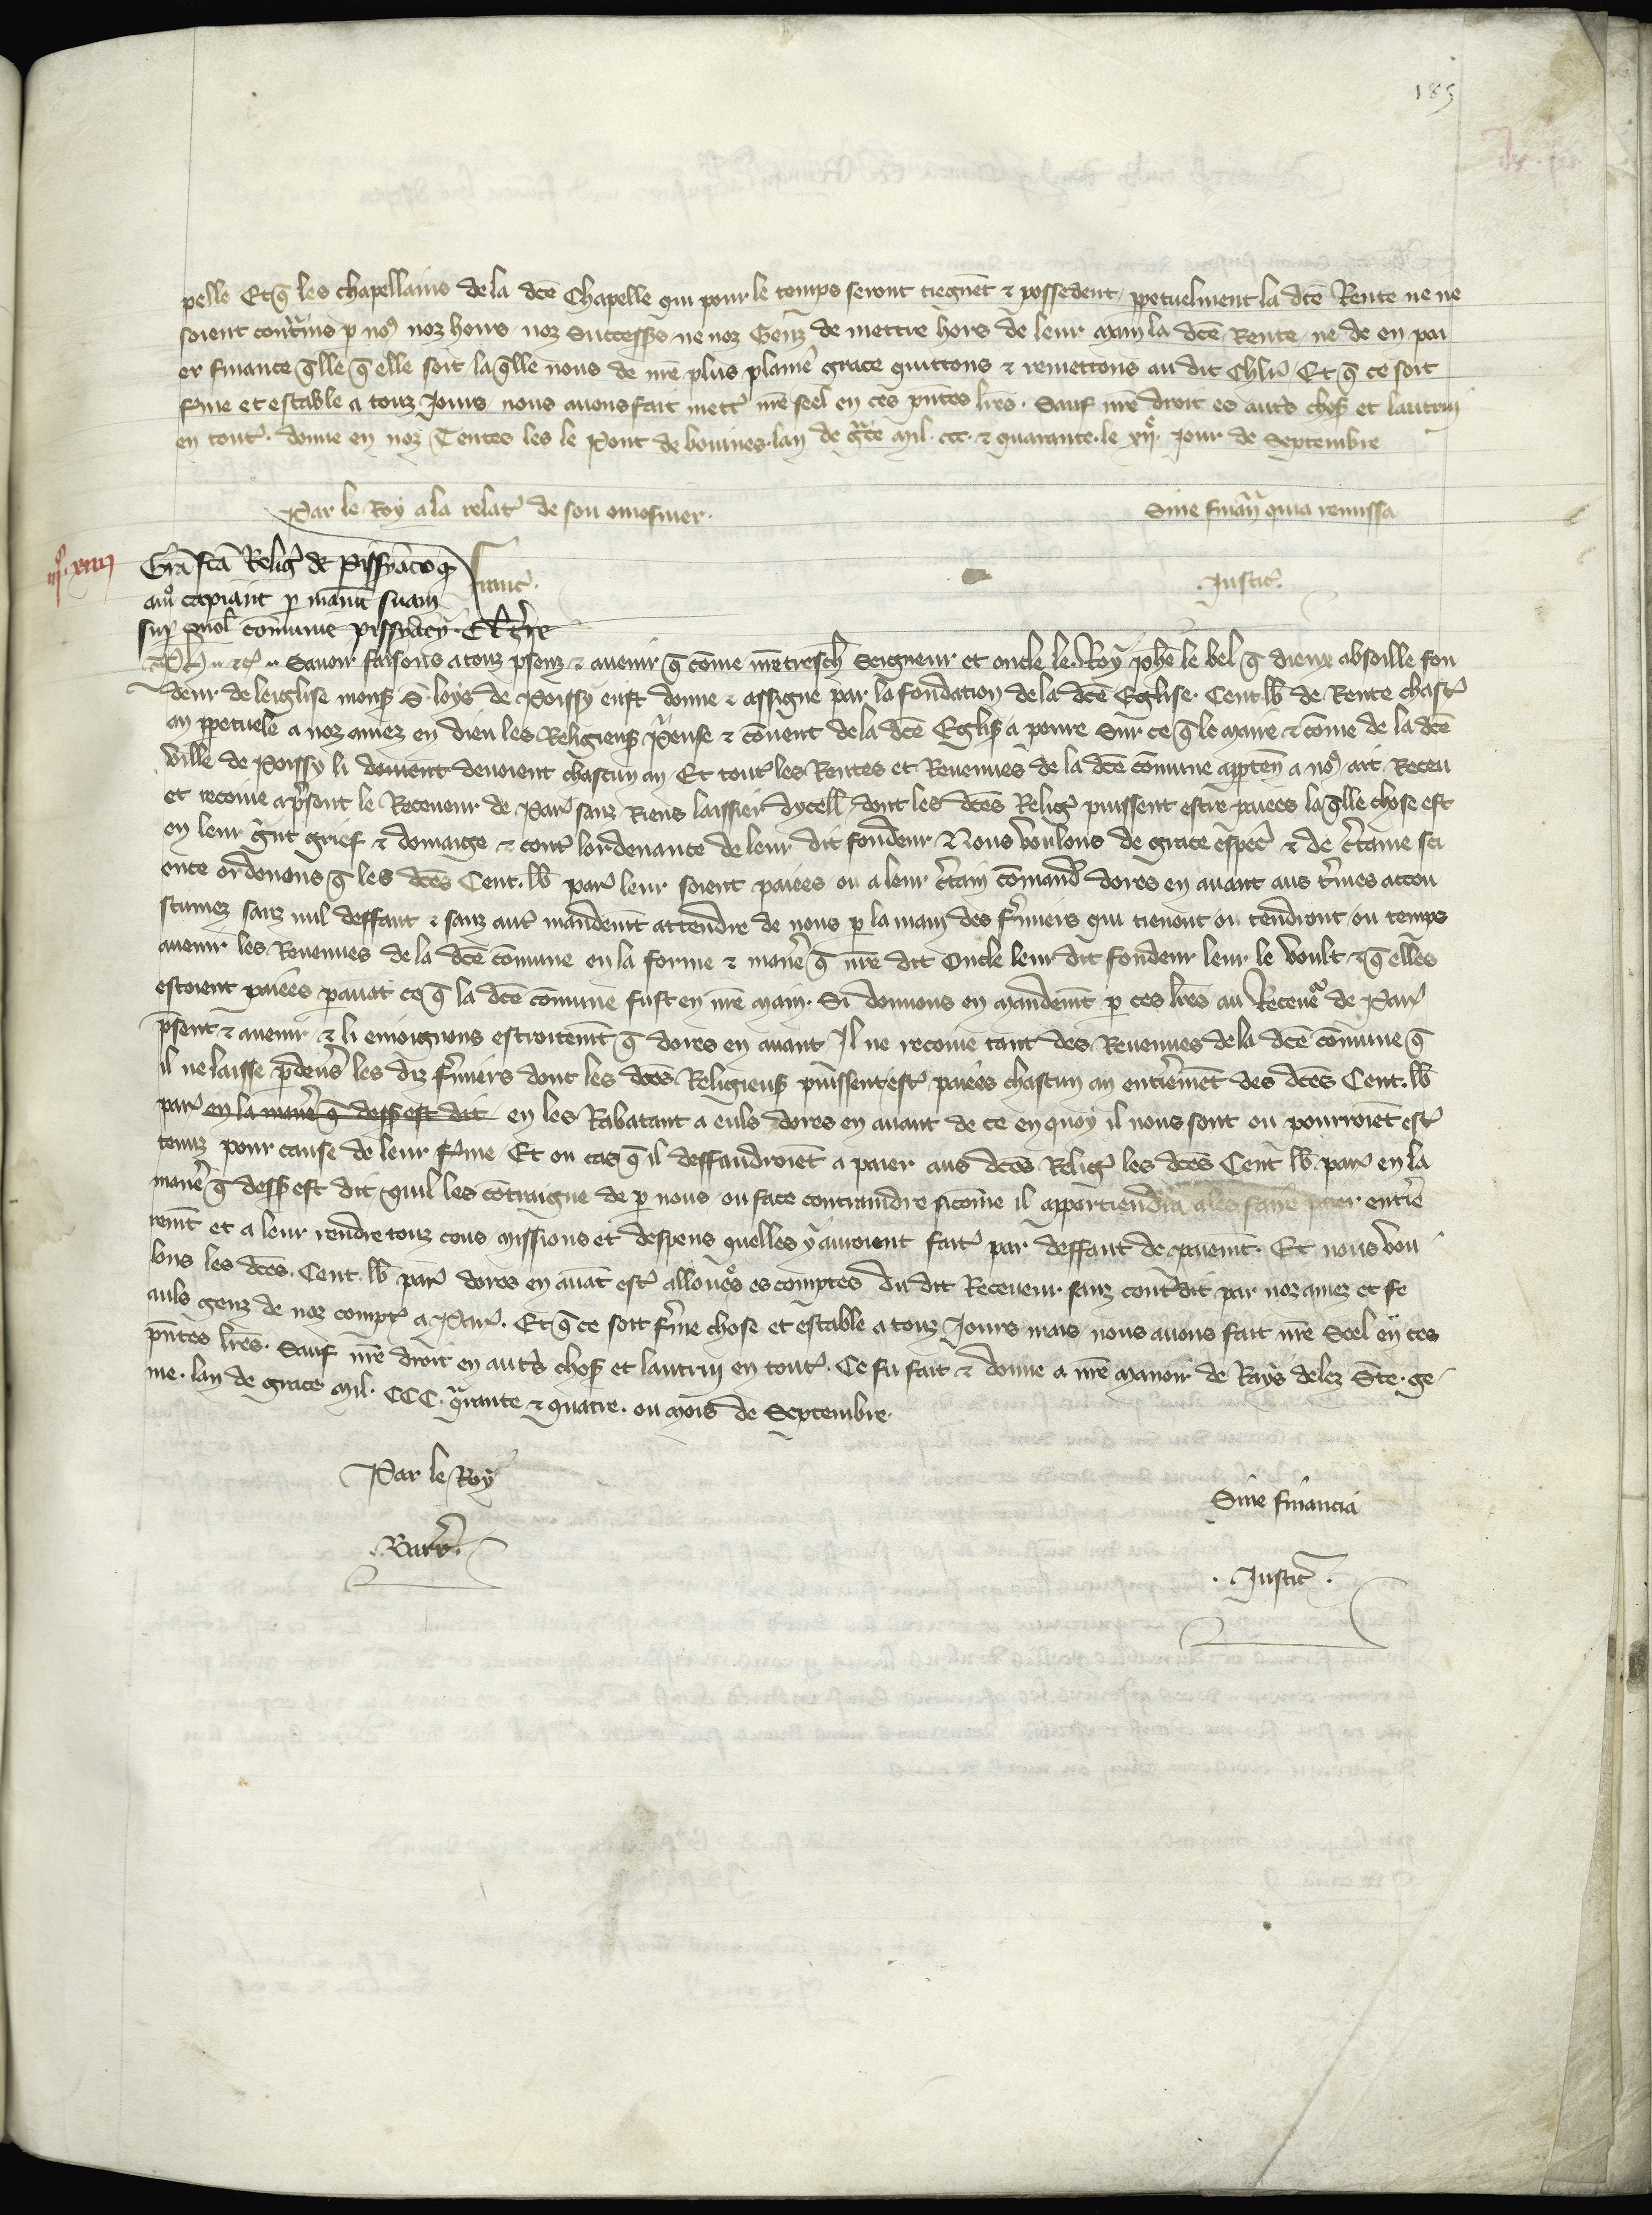 185
pelle Et q̄ les chapellains de la dc̄e Chapelle qui pour le temps seront tiegnēt ⁊ possedent ꝑpetuelment la dc̄e Rente ne ne
soient cont̄ins ꝑ noꝰ noz hoirs noz Successꝰs ne noz Genz de mettre hors de leur main la dc̄e Rente ne de en pai
er finance q̄lle q̄ elle soit la q̄lle nous de nr̄e plus plaine grace quittons ⁊ remettons au dit Chl̄r Et q̄ ce soit
ferme et estable a touz Jours nous auons fait mett̾ nr̄e seel en ces p̄ntes lr̄es. Sauf nr̄e droit es aut̾s choses et lautrui
en tout̾. donne en noz Tentes les le Pont de bouines lan de gr̄ce Mil. ccc. ⁊ quarante. le xij. Jour de Septembre
Par le Roy a la relat̾ de son omosnier.
Sine finan̄ quia remissa
Gr̄a fc̄a Relig̾ de Pissyaco q̄
Iustic̾.
capiant ꝑ manū suam
sup̾ com̄unie pissyacy
Ph̄ ⁊c̾ Sauoir faisons a touz p̄senz ⁊ auenir q̄ com̄e nr̄e tresch̾ Seigneur et oncle le Roy ph̄e le bel q̄ dieux absoille fon
deur de leiglise mons̾ S. loys de Poissy eust donne ⁊ assigne par la fondation de la dc̄e Eglise. Cent. lb̄ de Rente chasc̾
an ꝑpetuele a noz amez en dieu les Religieus̾ P̾euse ⁊ couent de la dc̄e Eglis̾ a penre Sur ce q̄ le maire ⁊ com̄e de la dc̄e
ville de Poissy li doiuent deuoient chascun an Et tout̾ les Rentes et Reuenues de la dc̄e com̄une apꝑten̄ a noꝰ ait Receu
et recoiue a p̄sent le Receueur de Par̾ sanz Riens laissier dycell̾ dont les dc̄es Relig̾ puissent estre paiees la q̄lle chose est
en leur g̾nt grief ⁊ domaige ⁊ cont̾ lordenance de leur dit fondeur Nous voulons de grace esp̄ec̾ ⁊ de c̾taine sci
ence ordenons q̄ les dc̄es Cent. lb̄ par̾ leur soient paiees ou a leur c̾tain com̄and̾ dores en auant aus t̾mes accou
stumez sanz nul deffaut ⁊ sanz aut̾ mandemt̄ attendre de nous ꝑ la main des f̾miers qui tienent ou tendront ou temps
auenir les Reuenues de la dc̄e com̄une en la forme ⁊ maner̾ q̄ nr̄e dit Oncle leur dit fondeur leur le voult ⁊ q̄ elles
estoient paiees ꝑauat ce q̄ la dc̄e com̄une fust en nr̄e main. Si donnons en mandemt̄ ꝑ ces lr̄es au Receueur de Par̾
p̄sent ⁊ auenir ⁊ li enioignons estroitemt̄ q̄ dores en auant Il ne recoiue tant des Reuenues de la dc̄e com̄une q̄
il ne laisse ꝑdeuers les diz f̾miers dont les dc̄es Religieus̾ puissent est̾ paiees chascun an entierement des dc̄es Cent. lb̄
par̾ en la maner̾ q̄ dess̾ est dit en les Rabatant a euls dores en auant de ce en quoy il nous sont ou pourroiēt est̾
tenuz pour cause de leur f̾me Et ou cas q̄ il deffaudroiēt a paier aus dc̄es Relig̾ les dc̄es Cent lb̄ par̾ en la
maner̾ q̄ dess̾ est dit quil les contraigne de ꝑ nous ou face contraindre sicom̄e il appartiendra a les faire paier entie
remt̄ et a leur rendre touz cous missions et despens quelles y auroient fait̾ par deffaut de paiemt̄. Et nous vou
lons les dc̄es. Cent. lb̄ par̾ dores en auāt est̾ allouees es comptes du dit Receueur sanz cont̾dit par noz amez et fe
auls genz de noz compt̾ a Par̾. Et q̄ ce soit f̾me chose et estable a touz Jours mais nous auons fait nr̄e Seel en ces
p̄ntes lr̄es. Sauf nr̄e droit en aut̾s chos̾ et lautrui en tout̾. Ce fu fait ⁊ donne a nr̄e manoir de Rays delez Ste. ge
me. lan de grace Mil. CCC. q̾rante ⁊ quatre. ou mois de Septembre.
Par le Roy
Sine financia
Barr̾.
Iustic̾.